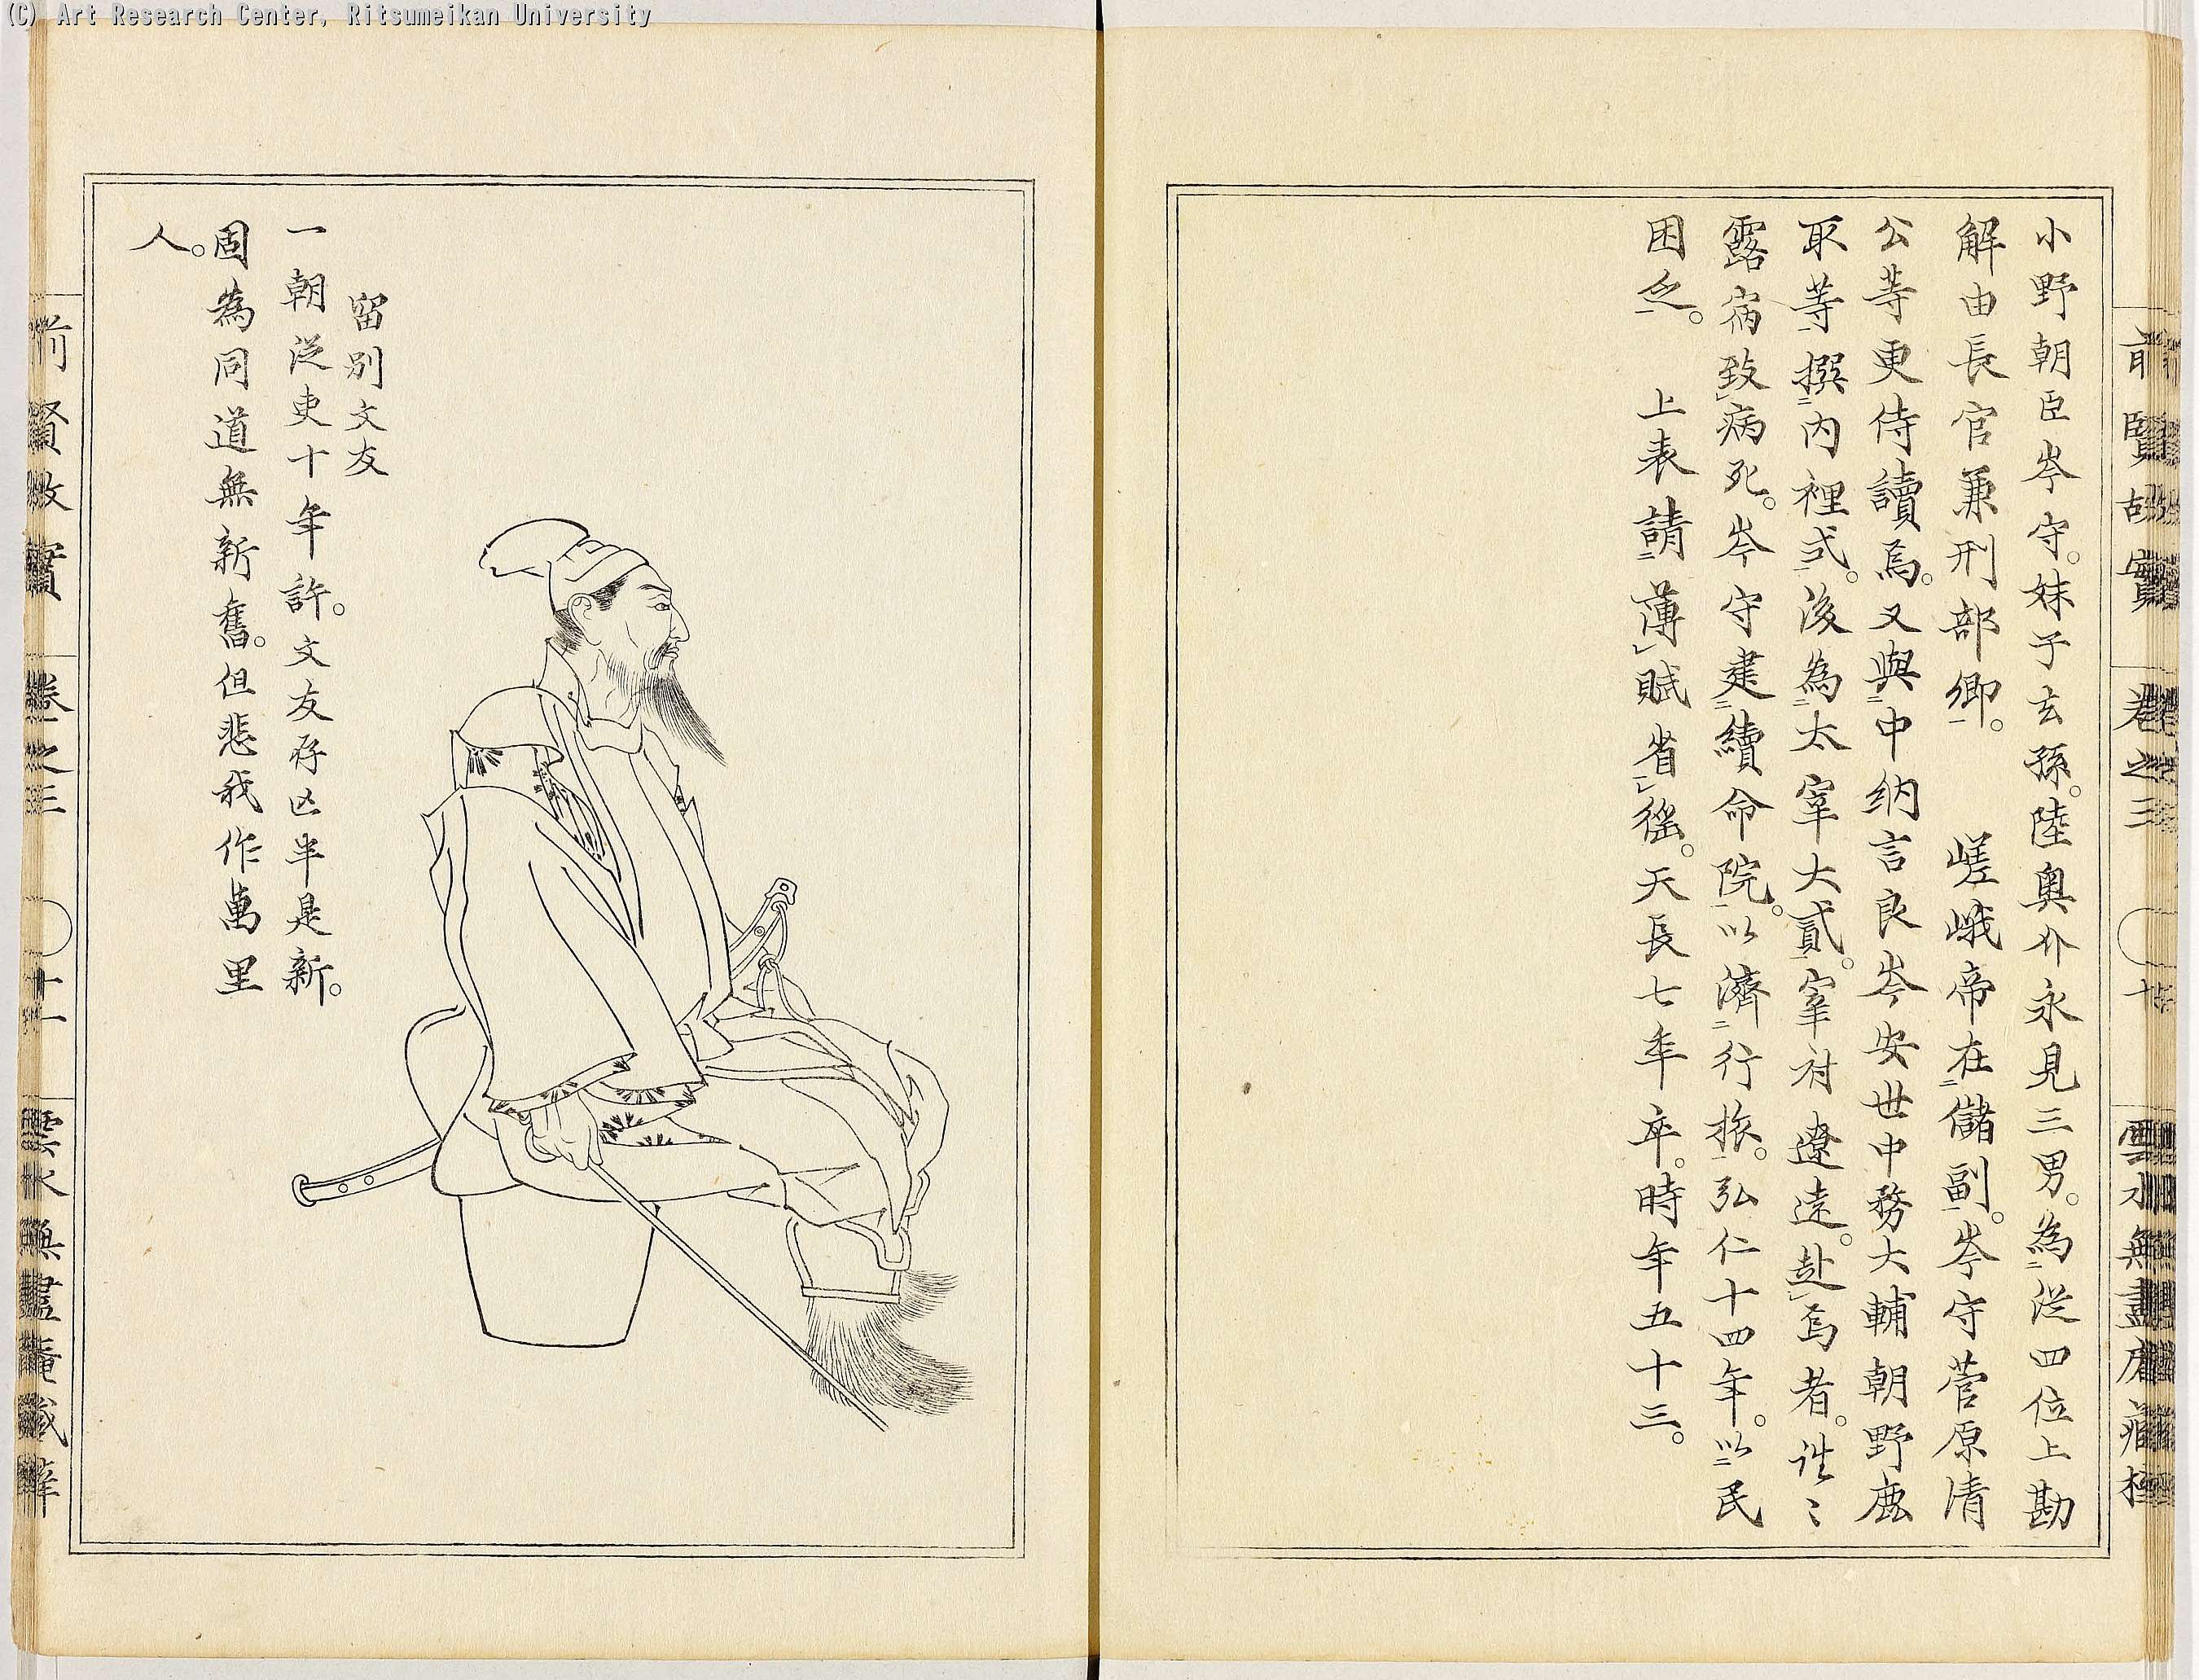 (C) Art Research Center, Ritsumeikan University
小野朝臣岑守。妹子玄孫。陸奥介永見三男。為㆓従四位上勘
解由長官兼刑部卿㆒。嵯峨帝在㆓儲副㆒。岑守菅原清
公等更侍讀焉。又與㆓中納言良岑安世中務大輔朝野鹿
取等㆒撰㆓内裡式㆒。後為㆓太宰大貳㆒。宰府遼遠。赴㆑焉者。往〻
露宿致㆑病死。岑守建㆓續命院㆒。以濟㆓行旅㆒。弘仁十四年。以㆓民
困乏㆒。上表請㆓薄㆑賦省㆑徭㆒。天長七年卒。時年五十三。
前賢故實 卷之三 十 雲水無盡庵藏梓
留別文友
一朝従吏十年許。文友存亡半是新。
固為同道無新舊。但悲我作萬里
人。
前賢故實 卷之三 十一 雲水無盡庵藏梓